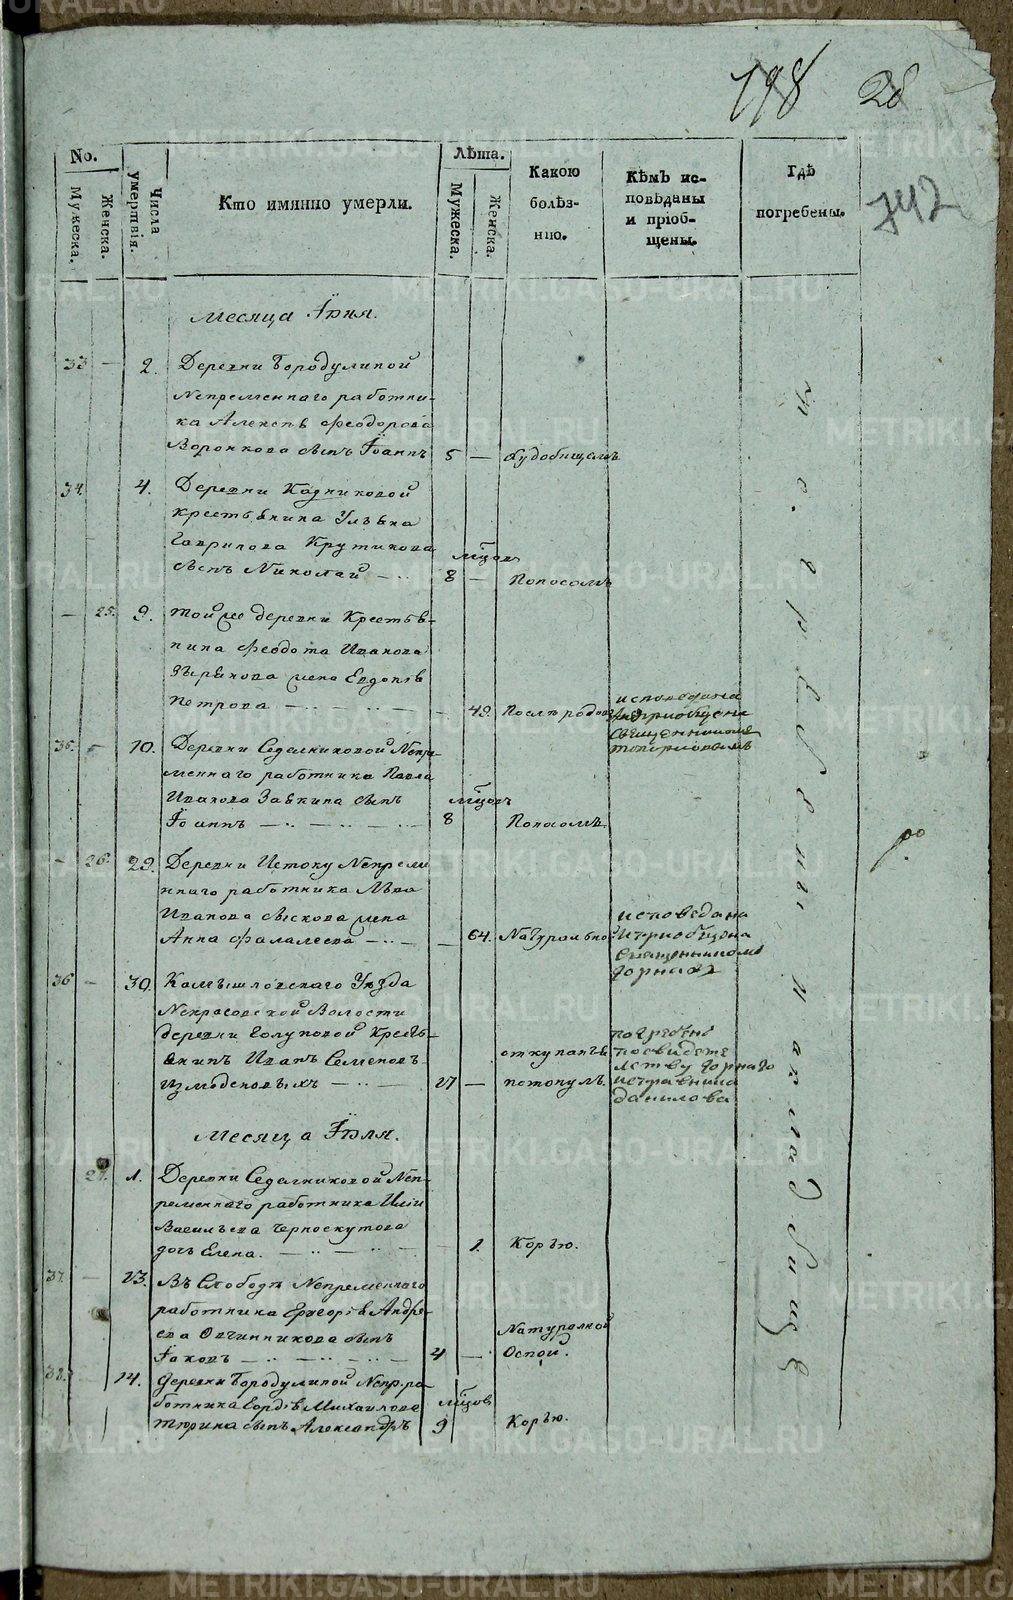 198 28
742
No. Мужеска. Женска.
Числа умертвія.
Кто имянно умерли.
Лѣта. Мужеска. Женска.
Какою болѣз-
нію.
Кѣмъ ис-
повѣданы
и пріоб-
щены.
Гдѣ
погребены.
Месяца Іюня.
33 — 2. Деревни Бородулиной
Непременнаго работни-
ка Алексѣя Феодорова
Воронкова сынъ Іоаннъ 5 —
34. 4. Деревни Кадниковой
крестьянина Ульяна
Гаврилова Крутикова
сынъ Николай — 8 — Поносомъ
— 25. 9. Той же деревни Крестья-
нина Феодота Иванова
Зырянова жена Евдокѣя
Петрова — 49. Послѣ родовъ
исповедана
и приобщена
священникомъ
35. — 10. Деревни Седелниковой Непре-
меннаго работника Павла
Иванова Завкина сынъ
Іоаннъ — 8 Поносомъ.
— 26. 29. Деревни Истоку Непреме-
ннаго работника Льва
Иванова Сыскова жена
Анна Фалалеева — 64. Натурально
исповедана
и приобщена
Священникомъ
36 — 30. Камышловскаго Уѣзда
Некрасовской Волости
деревни Голуповой Кресть-
янинъ Иванъ Семеновъ
Измоденовыхъ — 27 — откупаясь
потонулъ
погребенъ
посвидете
лству горнаго
исправника
данилова
Месяца Іюля.
27. 1. Деревни Седелниковой Неп-
ременнаго работника Иліи
Васильева Черноскутова
дочь Елена. — 1. Корью.
37. — 13. Въ Слободѣ Непременнаго
работника Григорѣя Андре-
ева Овчинникова сынъ
Іаковъ — 4 — Натуралной
Оспой.
38. — 14. Деревни Бородулиной Непр. ра-
ботника Гордѣя Михайлова
Тюрина сынъ Александръ 9 Корью.
погребены на кладбище
METRIKI.GASO-URAL.RU